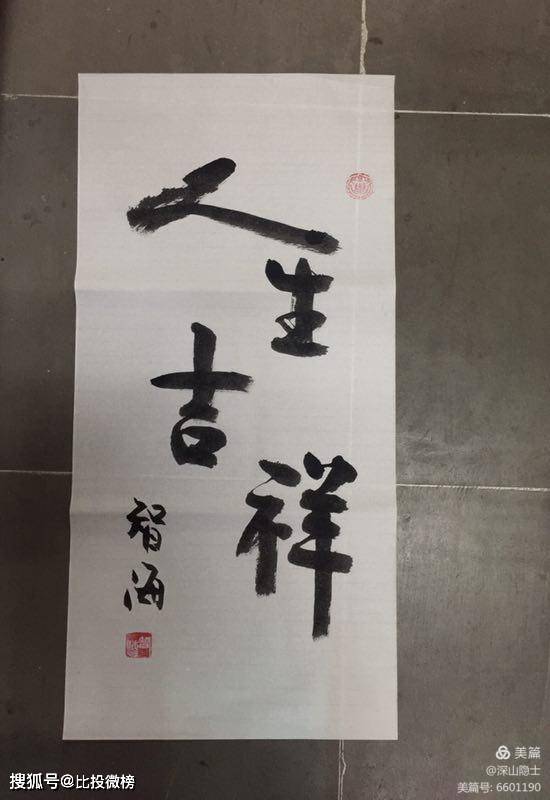 人生
吉祥
智海
美篇
@深山隐士
美篇号: 6601190
搜狐号@比投微榜